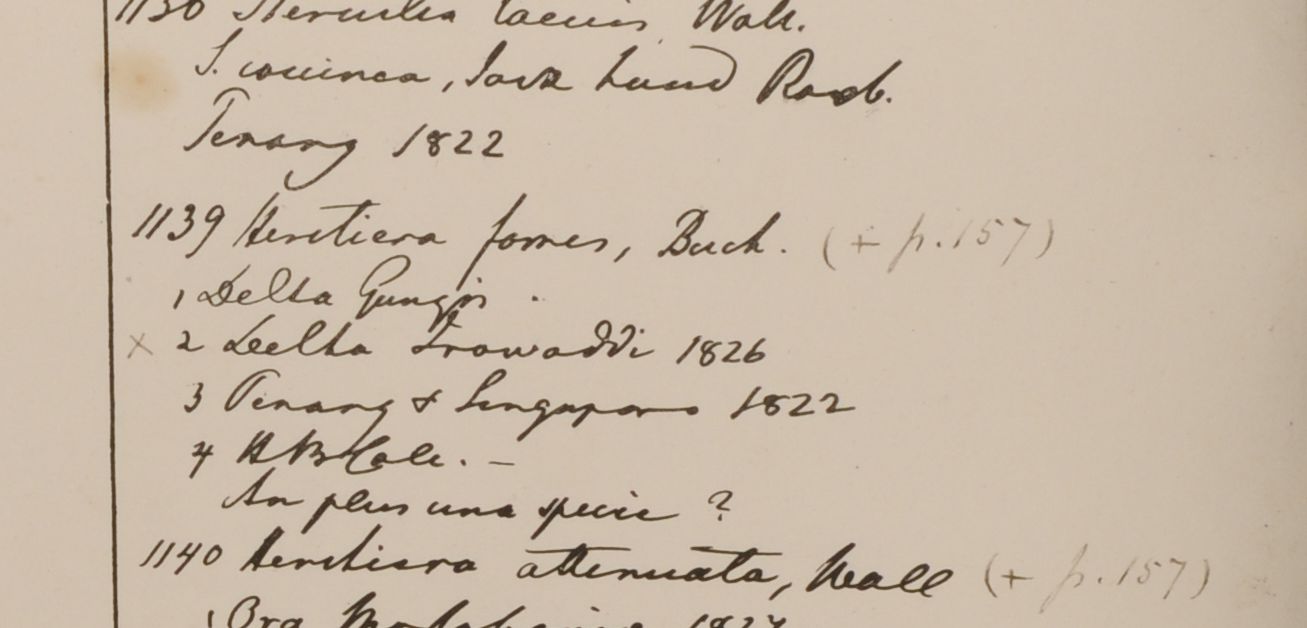 1138 Sterculia laevis Wall.
S. coccinea, Jack haud Roxb.
Penang 1822
1139 Heritiera fomes, Buch. (+ p.157)
1 Delta Gangis
x 2 Delta Irawaddi 1826
3 Penang & Singapore 1822
4 HBCalc. –
An plus una specie ?
1140 Heritiera attenuata, Wall (+ p.157)
1 Ora